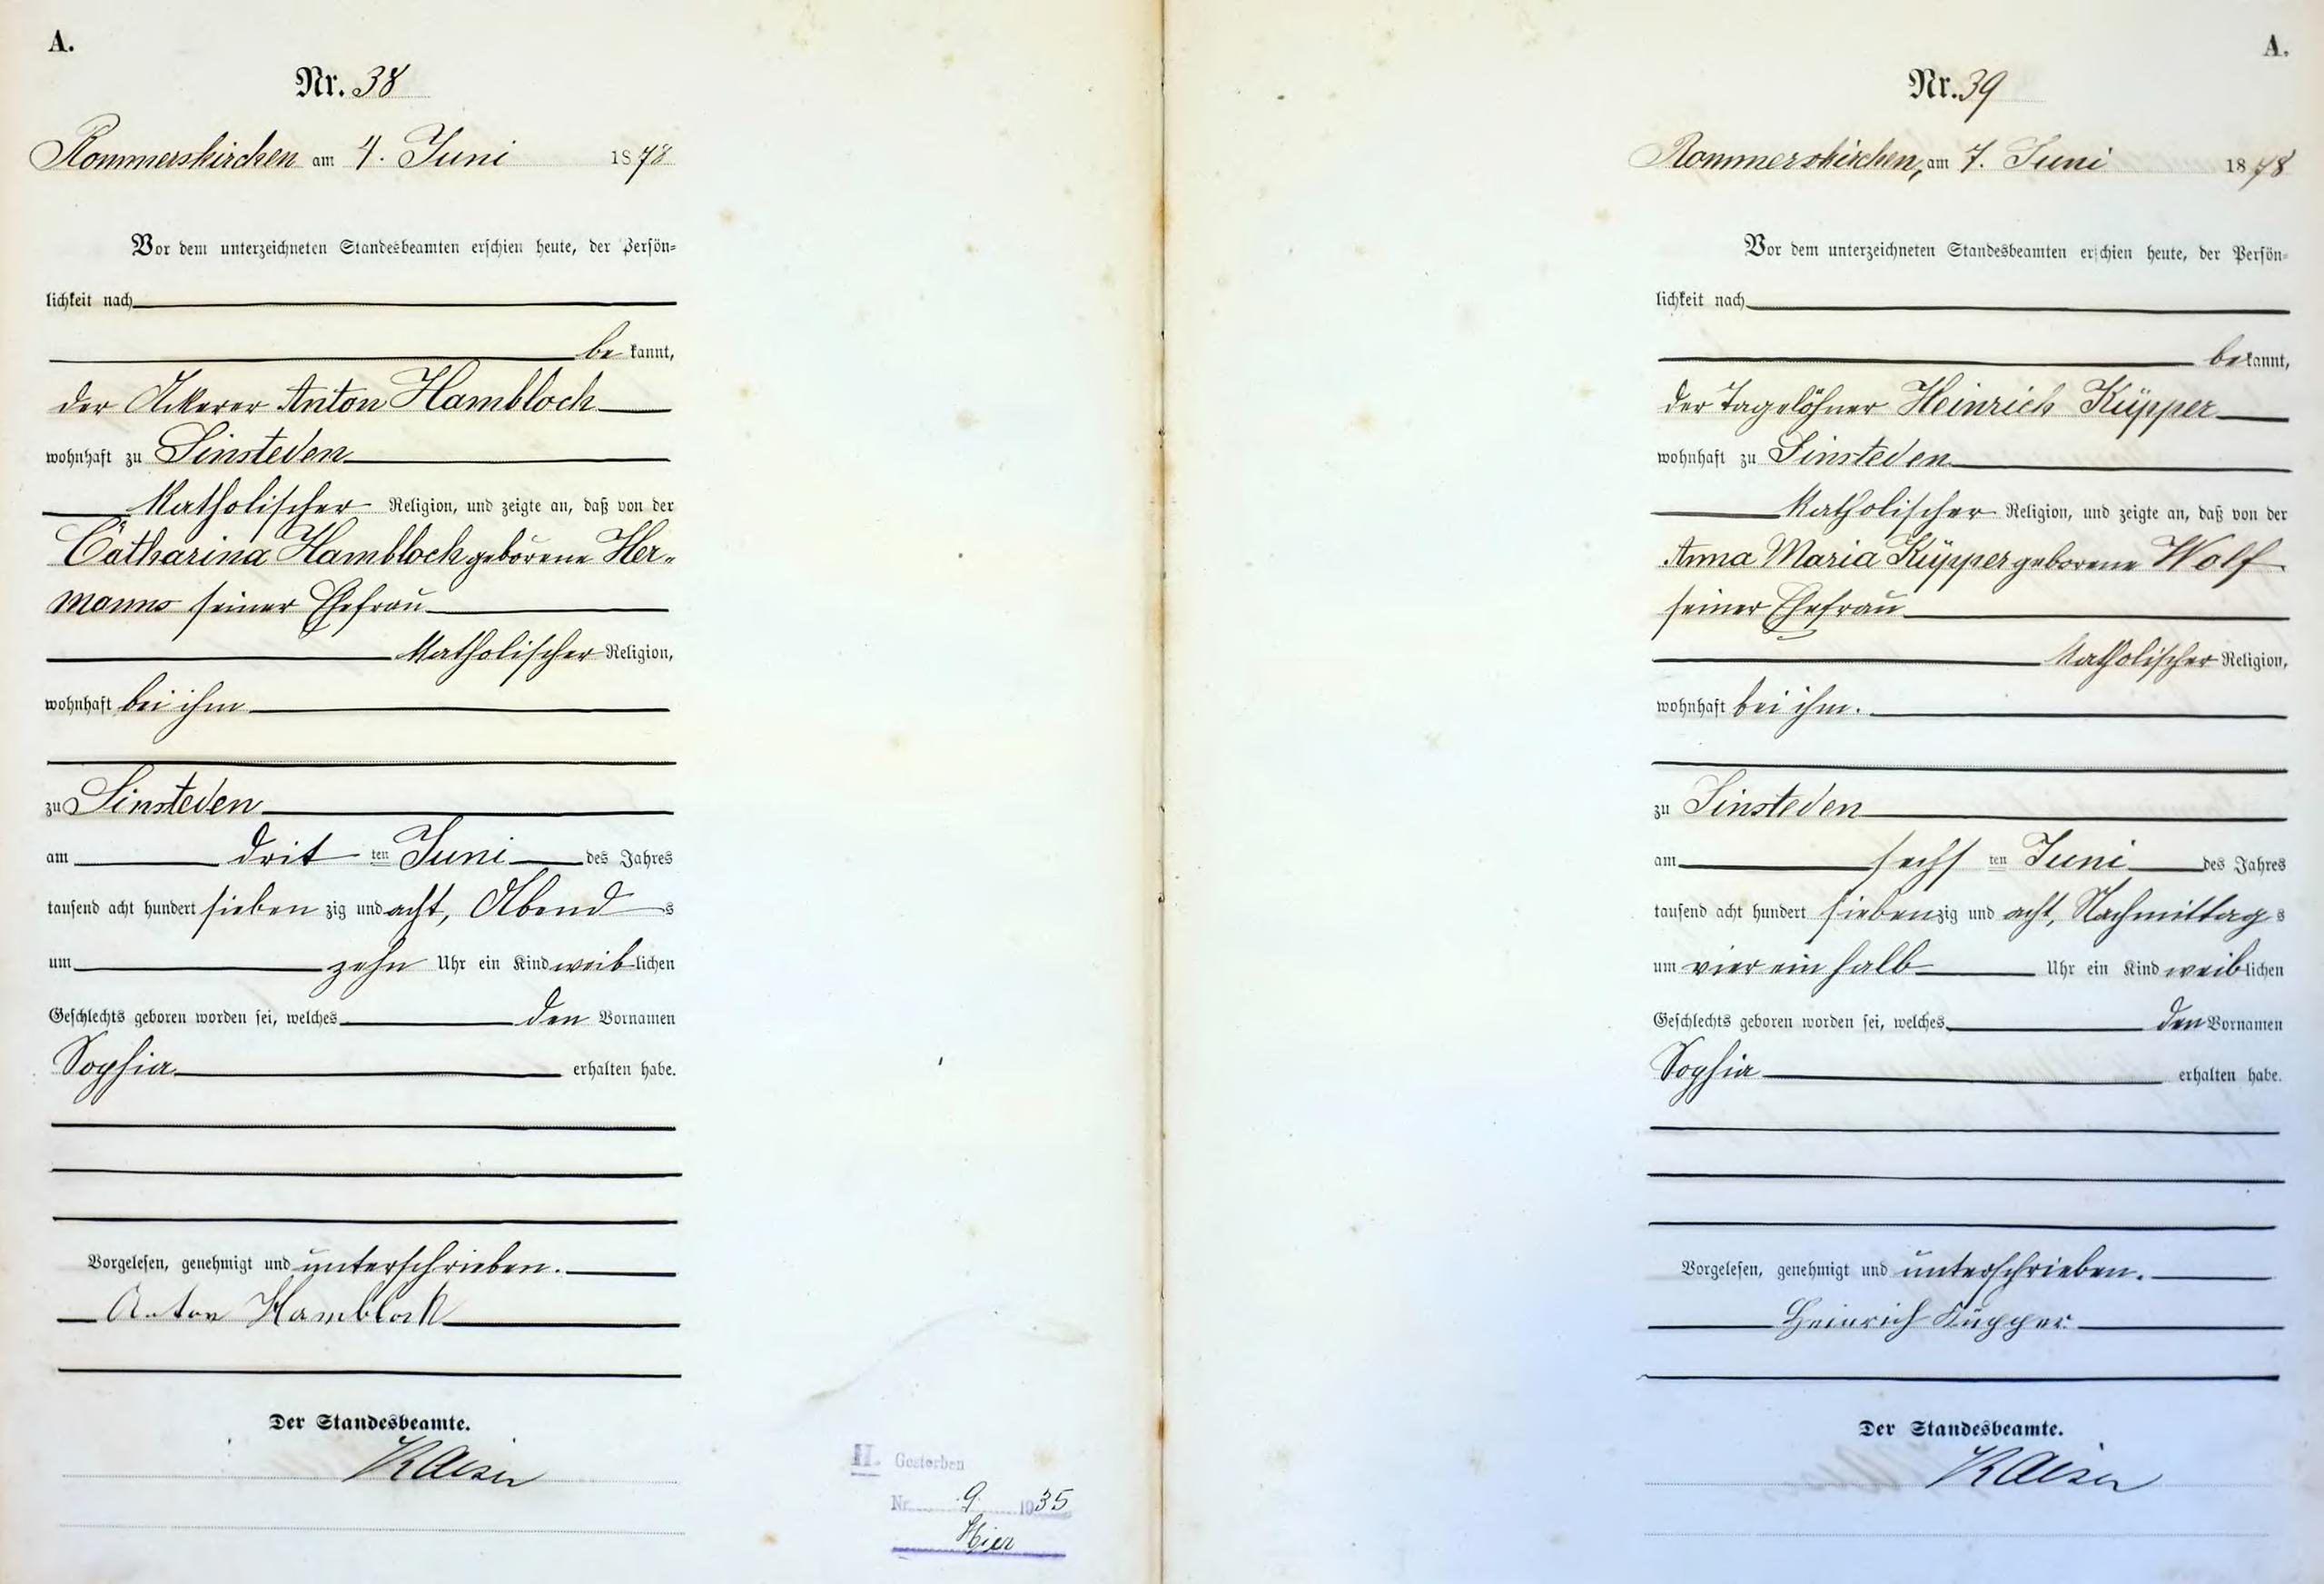 A.
Nr. 38
Rommerskirchen am 4. Juni 1878
Vor dem unterzeichneten Standesbeamten erschien heute, der Persön-
lichkeit nach
be kannt,
der Ackerer Anton Hambloch
wohnhaft zu Sinsteden
katholischer Religion, und zeigte an, daß von der
Catharina Hambloch geborene Her-
manns seiner Ehefrau
katholischer Religion,
wohnhaft bei ihm
zu Sinsteden
am drit ten Juni des Jahres
tausend acht hundert sieben zig und acht, Abend s
um zehn Uhr ein Kind weiblichen
Geschlechts geboren worden sei, welches den Vornamen
Sophia erhalten habe.
Vorgelesen, genehmigt und unterschrieben.
Anton Hambloch
Der Standesbeamte.
Kaiser
H. Gestorben
Nr. 9 1935
Hier
A.
Nr. 39
Rommerskirchen, am 7. Juni 1878
Vor dem unterzeichneten Standesbeamten erschien heute, der Persön-
lichkeit nach
bekannt,
der Tagelöhner Heinrich Küpper
wohnhaft zu Sinsteden
katholischer Religion, und zeigte an, daß von der
Anna Maria Küpper geborene Wolf
seiner Ehefrau
katholischer Religion,
wohnhaft bei ihm.
zu Sinsteden
am sechs ten Juni des Jahres
tausend acht hundert siebenzig und acht, Nachmittag s
um vier ein halb Uhr ein Kind weiblichen
Geschlechts geboren worden sei, welches den Vornamen
Sophia erhalten habe.
Vorgelesen, genehmigt und unterschrieben.
Heinrich Küpper
Der Standesbeamte.
Kaiser